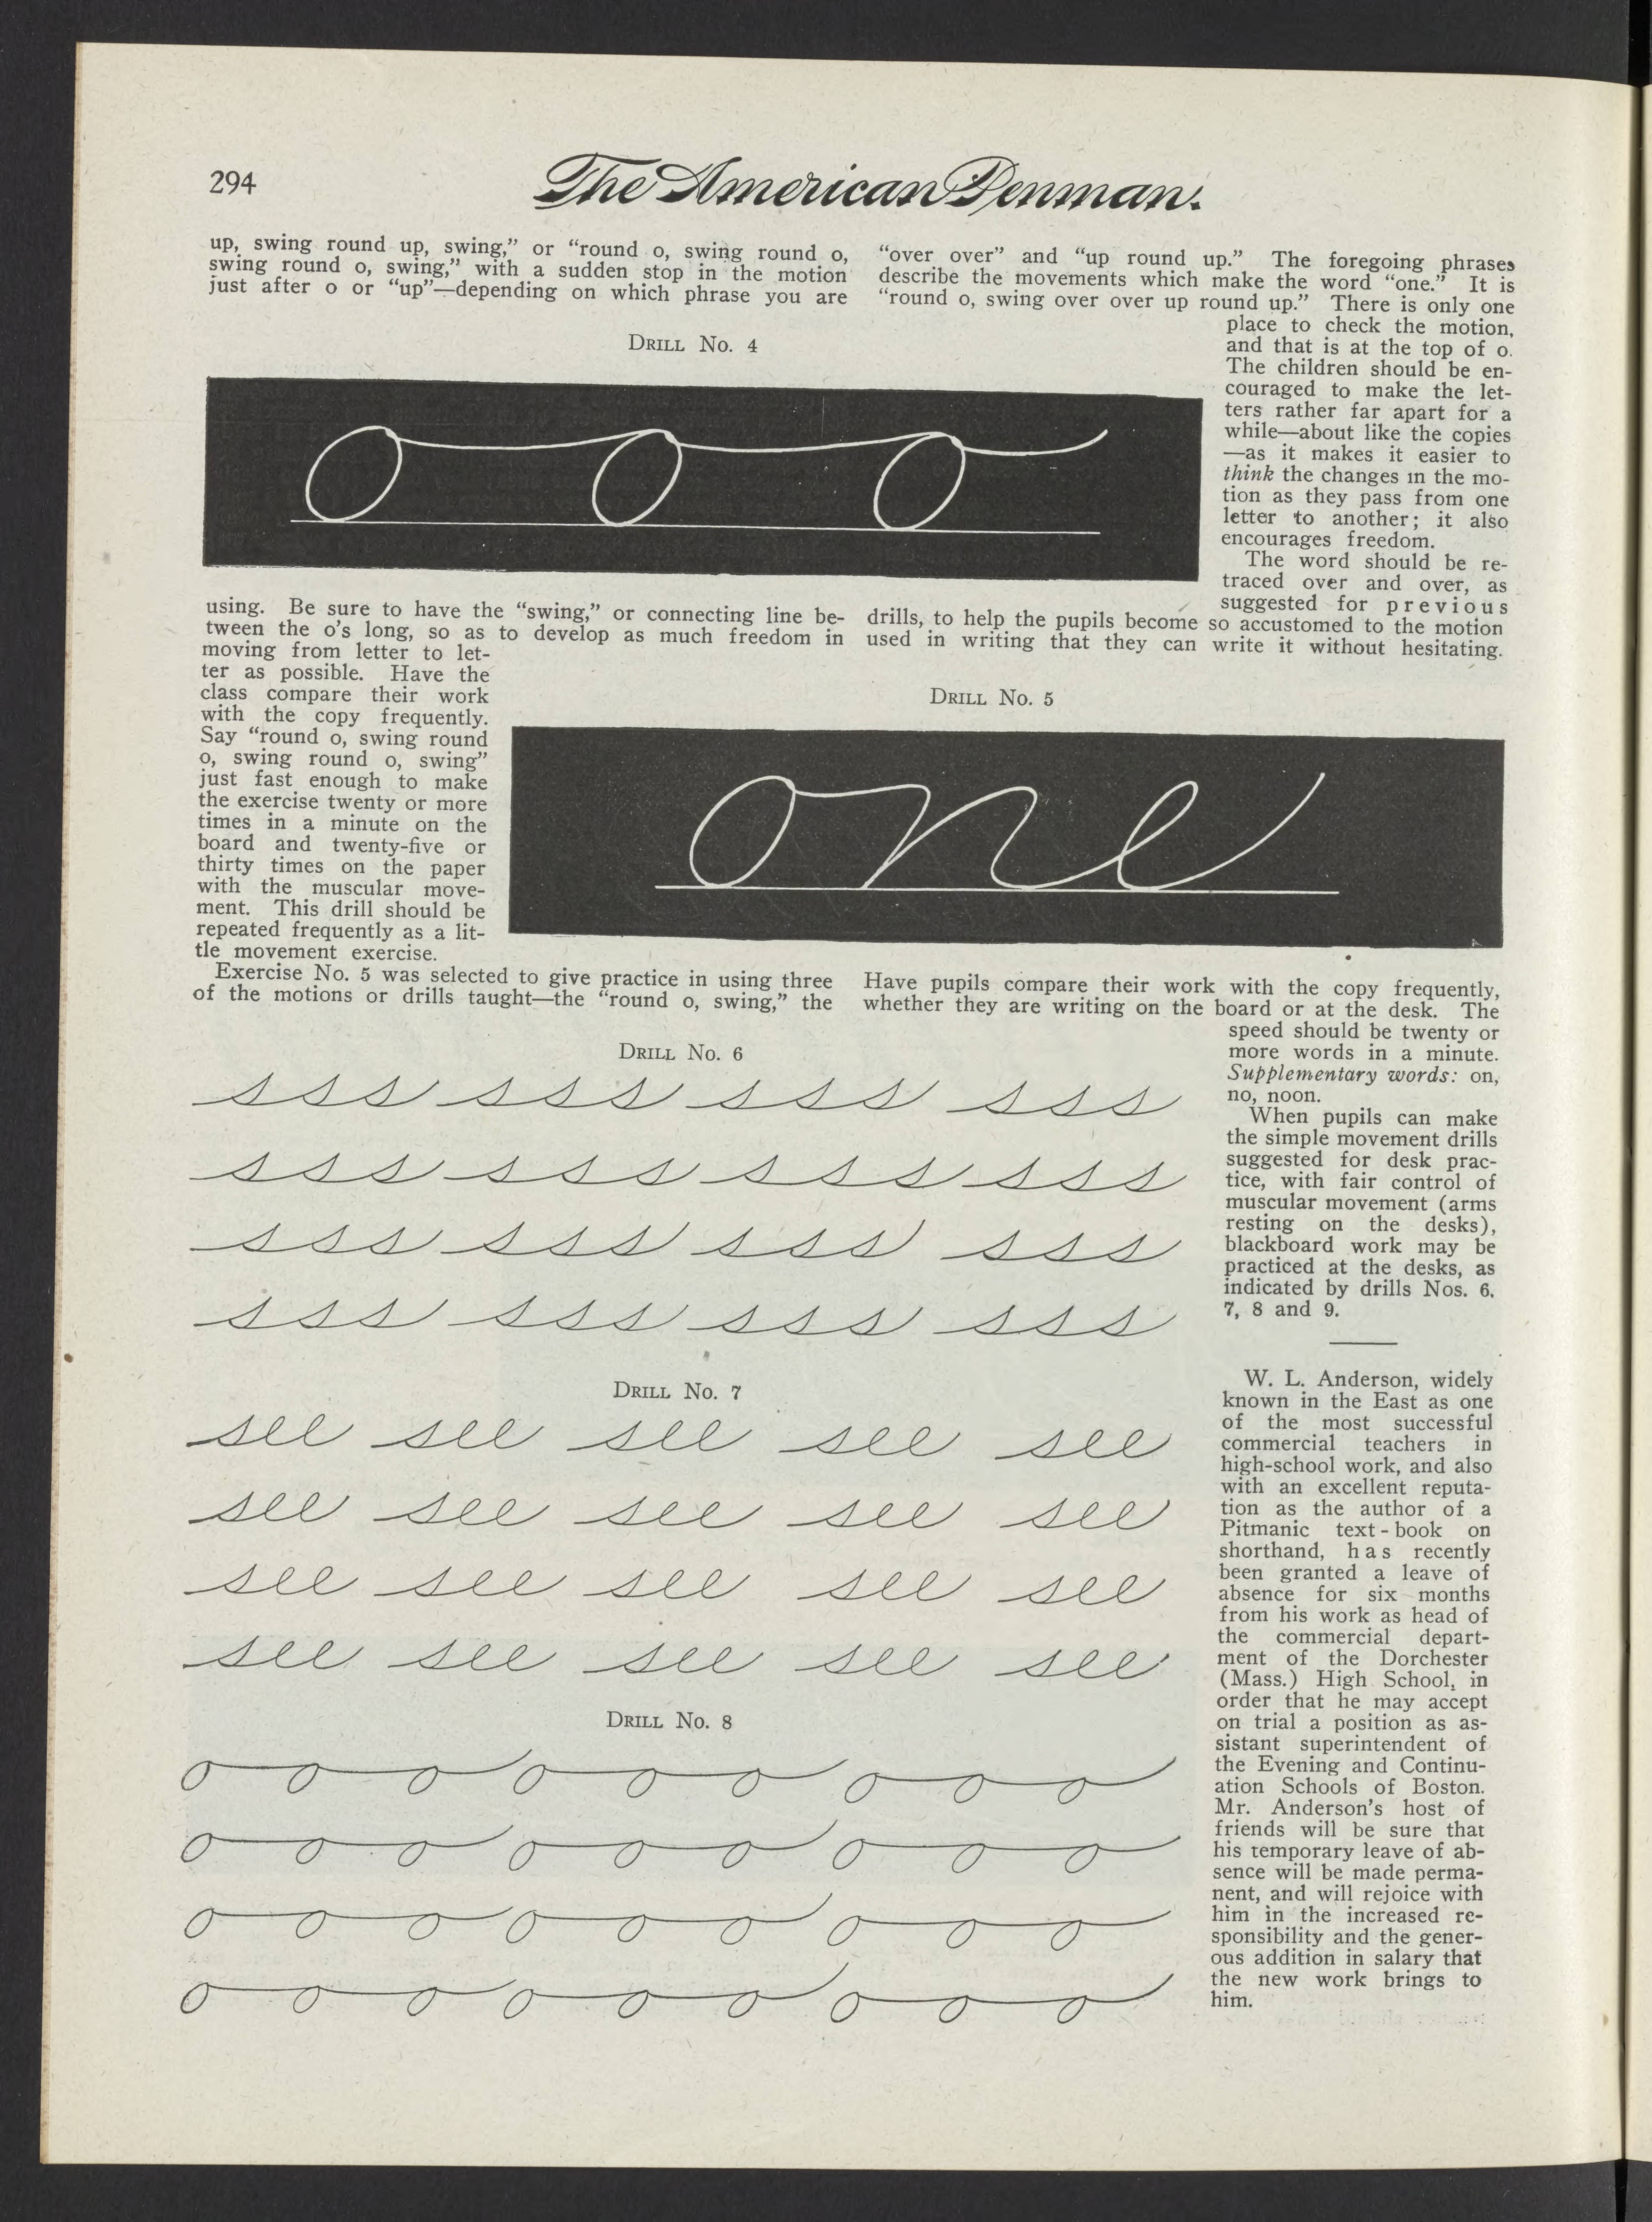 294
The American Penman.
up, swing round up, swing,” or “round o, swing round o,
swing round o, swing,” with a sudden stop in the motion
just after o or “up”—depending on which phrase you are
DRILL No. 4
o o o
using. Be sure to have the “swing,” or connecting line be-
tween the o's long, so as to develop as much freedom in
moving from letter to let-
ter as possible. Have the
class compare their work
with the copy frequently.
Say “round o, swing round
o, swing round o, swing”
just fast enough to make
the exercise twenty or more
times in a minute on the
board and twenty-five or
thirty times on the paper
with the muscular move-
ment. This drill should be
repeated frequently as a lit-
tle movement exercise.
Exercise No. 5 was selected to give practice in using three
of the motions or drills taught—the “round o, swing,” the
“over over” and “up round up.” The foregoing phrases
describe the movements which make the word “one.” It is
“round o, swing over over up round up.” There is only one
place to check the motion,
and that is at the top of o.
The children should be en-
couraged to make the let-
ters rather far apart for a
while—about like the copies
—as it makes it easier to
think the changes in the mo-
tion as they pass from one
letter to another; it also
encourages freedom.
The word should be re-
traced over and over, as
suggested for previous
drills, to help the pupils become so accustomed to the motion
used in writing that they can write it without hesitating.
DRILL No. 5
one
Have pupils compare their work with the copy frequently,
whether they are writing on the board or at the desk. The
speed should be twenty or
more words in a minute.
Supplementary words: on,
no, noon.
When pupils can make
the simple movement drills
suggested for desk prac-
tice, with fair control of
muscular movement (arms
resting on the desks),
blackboard work may be
practiced at the desks, as
indicated by drills Nos. 6,
7, 8 and 9.
DRILL No. 6
sss sss sss sss
sss sss sss sss
sss sss sss sss
sss sss sss sss
DRILL No. 7
see see see see see
see see see see see
see see see see see
see see see see see
DRILL No. 8
ooo ooo ooo
ooo ooo ooo
ooo ooo ooo
ooo ooo ooo
W. L. Anderson, widely
known in the East as one
of the most successful
commercial teachers in
high-school work, and also
with an excellent reputa-
tion as the author of a
Pitmanic text-book on
shorthand, has recently
been granted a leave of
absence for six months
from his work as head of
the commercial depart-
ment of the Dorchester
(Mass.) High School, in
order that he may accept
on trial a position as as-
sistant superintendent of
the Evening and Continu-
ation Schools of Boston.
Mr. Anderson's host of
friends will be sure that
his temporary leave of ab-
sence will be made perma-
nent, and will rejoice with
him in the increased re-
sponsibility and the gener-
ous addition in salary that
the new work brings to
him.